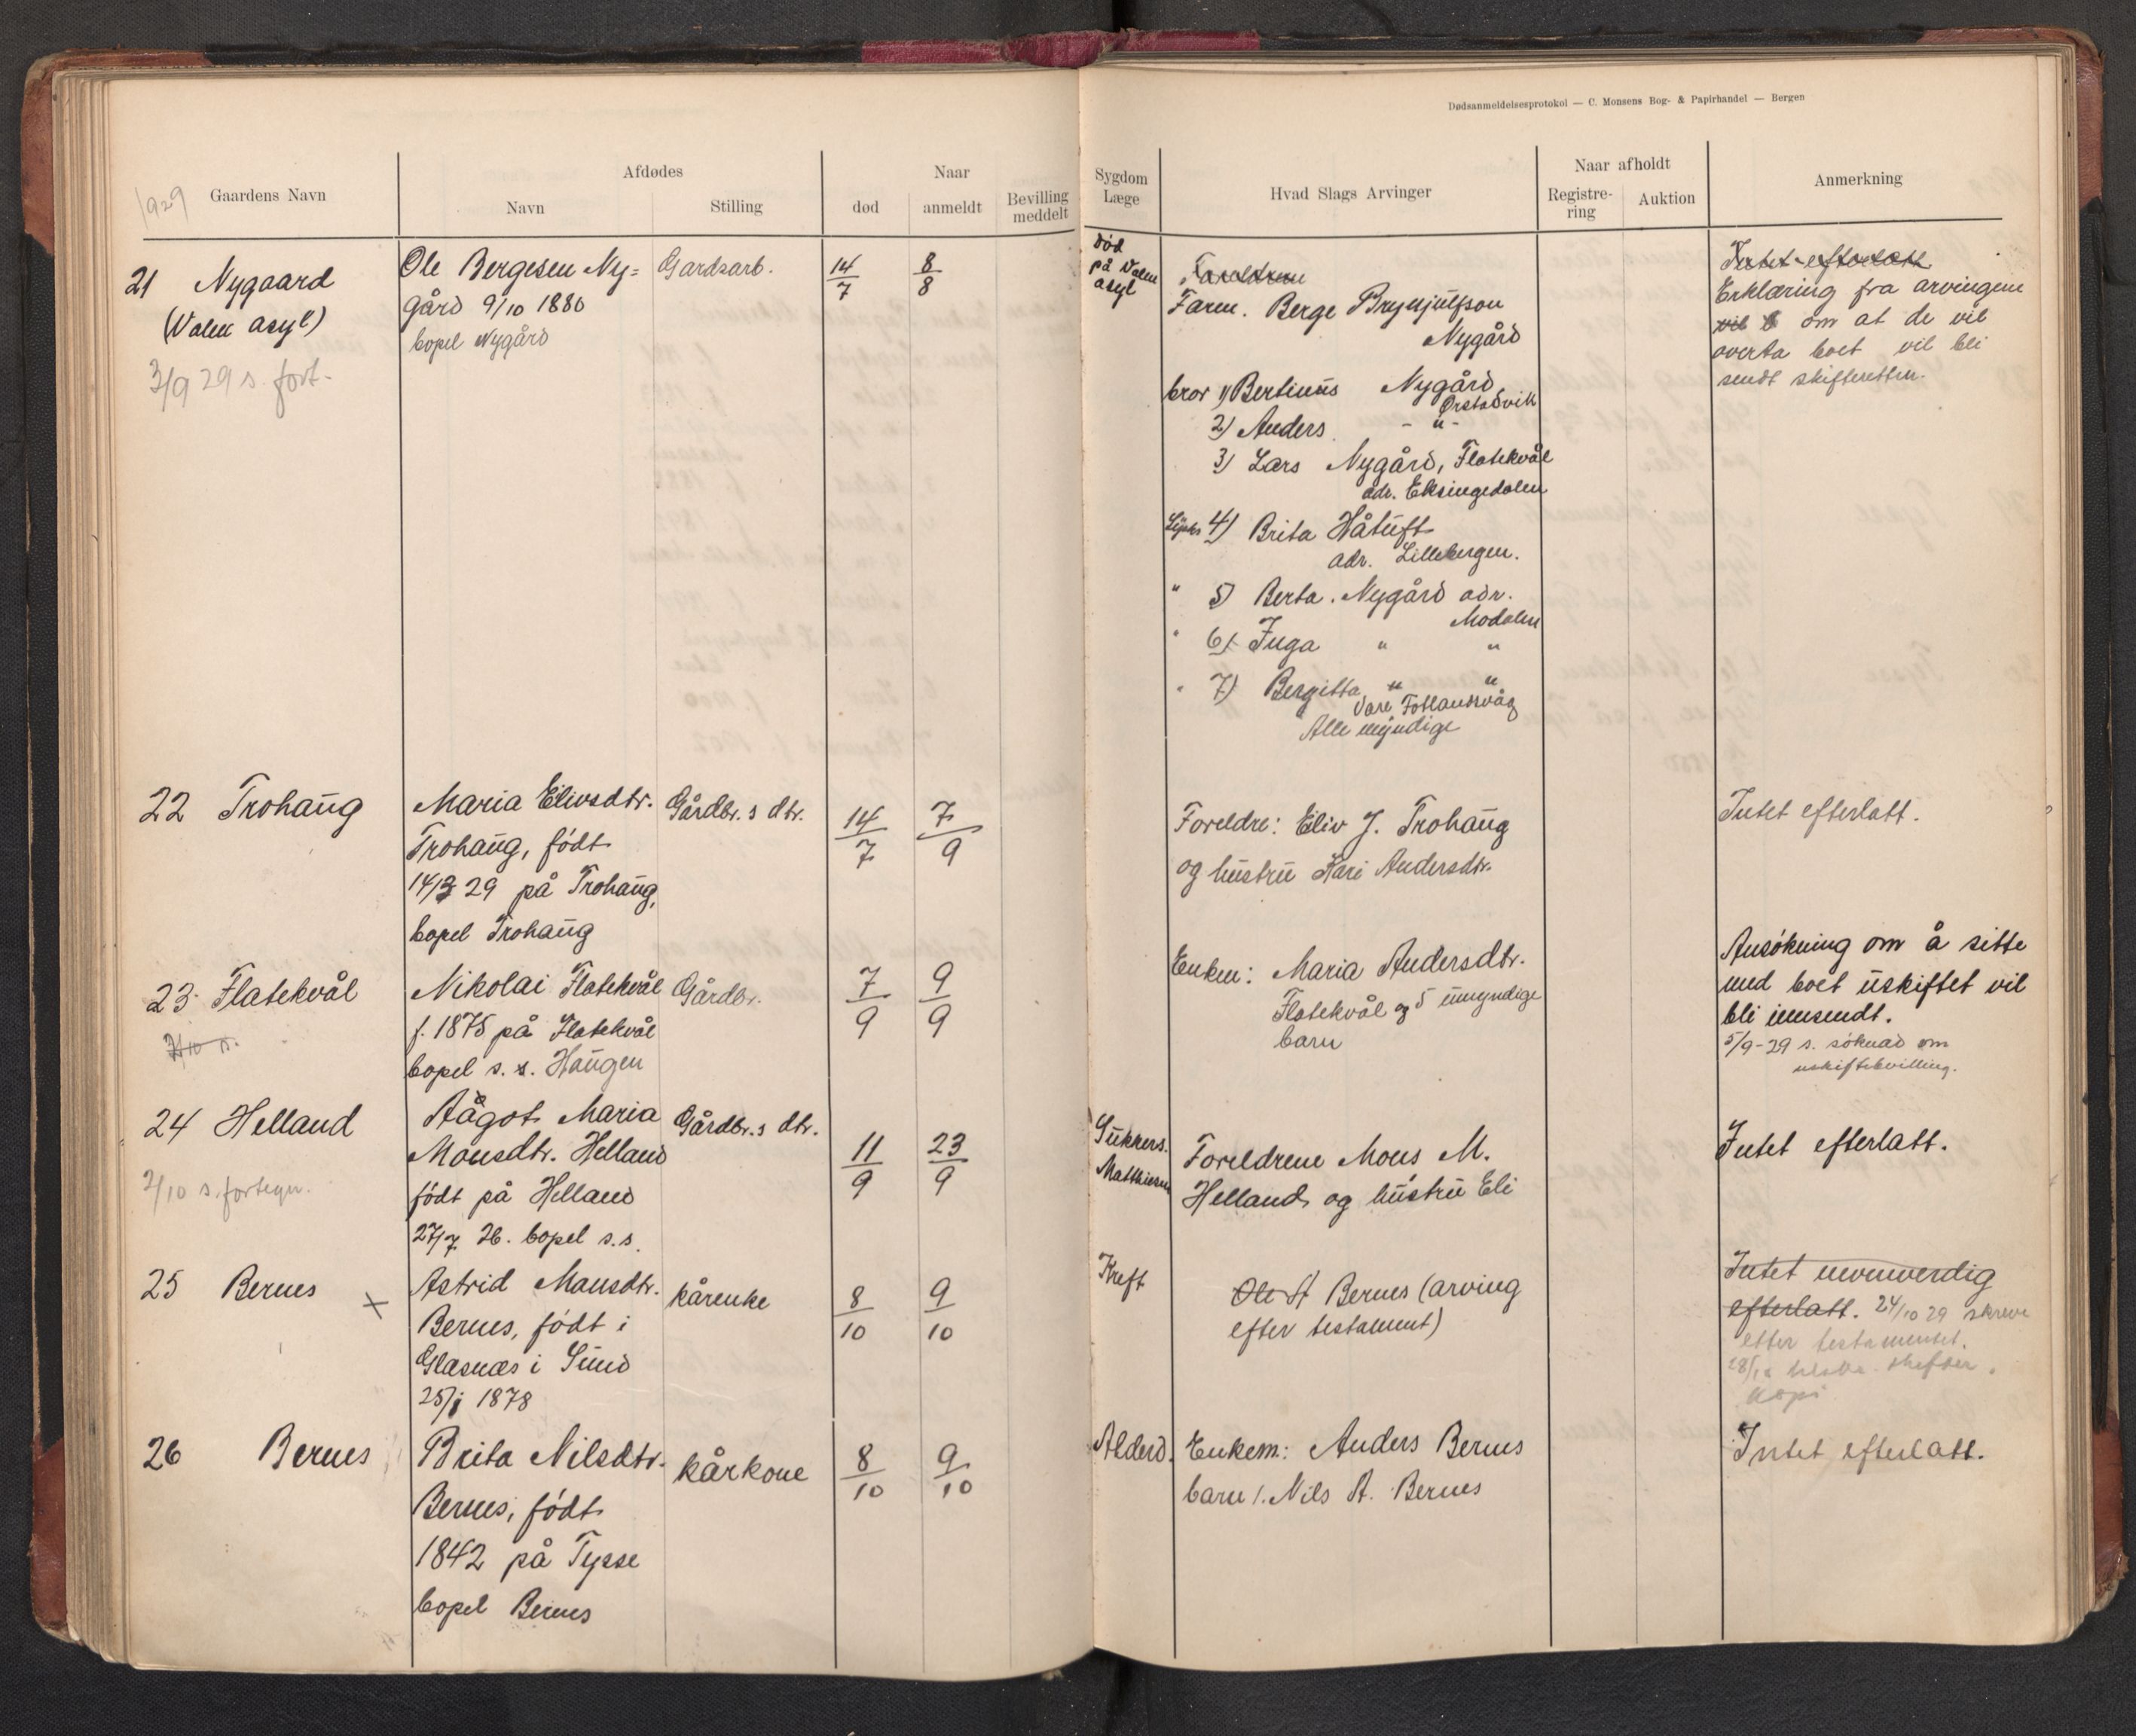 Dødsanmeldelsesprotokol — C. Monsens Bog- & Papirhandel — Bergen
1929
Gaardens Navn
Afdødes
Navn
Stilling
Naar
død
anmeldt
Bevilling meddelt
Sygdom
Læge
Hvad Slags Arvinger
Naar afholdt
Registre-
ring
Auktion
Anmerkning
21 Nygaard
(Valen asyl)
3/9 29 s. fort.
Ole Bergesen Ny=
gård 9/10 1880
bopel Nygård
Gardsarb.
14/7
8/8
død
på Valen
asyl
Foreldrene
Faren. Berge Brynjulfson
Nygård
bror 1) Bertinus Nygård,
Ørstadvik
2) Anders - " -
3) Lars Nygård, Flatekvål
adr. Eksingedalen
4) Brita Håtuft
adr. Lillebergen.
" 5) Berta. Nygård adr.
Modalen
" 6) Inga " "
" 7) Bergitta " "
Fotlandsvåg
Alle myndige
Intet efterlatt
Erklæring fra arvingene
vil om at de vil
overta boet vil bli
sendt skifteretten.
22 Trohaug
Maria Elivsdtr.
Trohaug, født
14/3 29 på Trohaug,
bopel Trohaug
Gårdbr.s dtr.
14/7
7/9
Foreldre: Eliv J. Trohaug
og hustru Kari Andersdtr.
Intet efterlatt.
23. Flatekvål
Nikolai Flatekvål
f. 1875 på Flatekvål
bopel s. s. Haugen
Gårdbr.
7/9
9/9
Enken: Maria Andersdtr.
Flatekvål og 5 umyndige
barn
Ansøkning om å sitte
med boet uskiftet vil
bli innsendt.
5/9-29 s. søknad om
uskiftebevilling.
24 Helland
2/10 s. fortegn.
Aågot Maria
Monsdtr. Helland
født på Helland
27/7 26. bopel s.s.
Gårdbr.s dtr.
11/9
23/9
Sukkers.
Matthiesen
Foreldrene Mons M.
Helland og hustru Eli
Intet efterlatt.
25 Bernes
x
Astrid Mansdtr.
Bernes, født i
Glæsnæs i Sund
25/1 1878
kårenke
8/10
9/10
Kreft
Ole A Bernes (arving
efter testament)
Intet nevneverdig
efterlatt. 24/10 29 skrevet
etter testamentet.
kopi
26 Bernes
Brita Nilsdtr.
Bernes, født
1842 på Tysse
bopel Bernes
kårkone
8/10
9/10
Alderd.
Enkem: Anders Bernes
barn 1. Nils A. Bernes
Intet efterlatt.